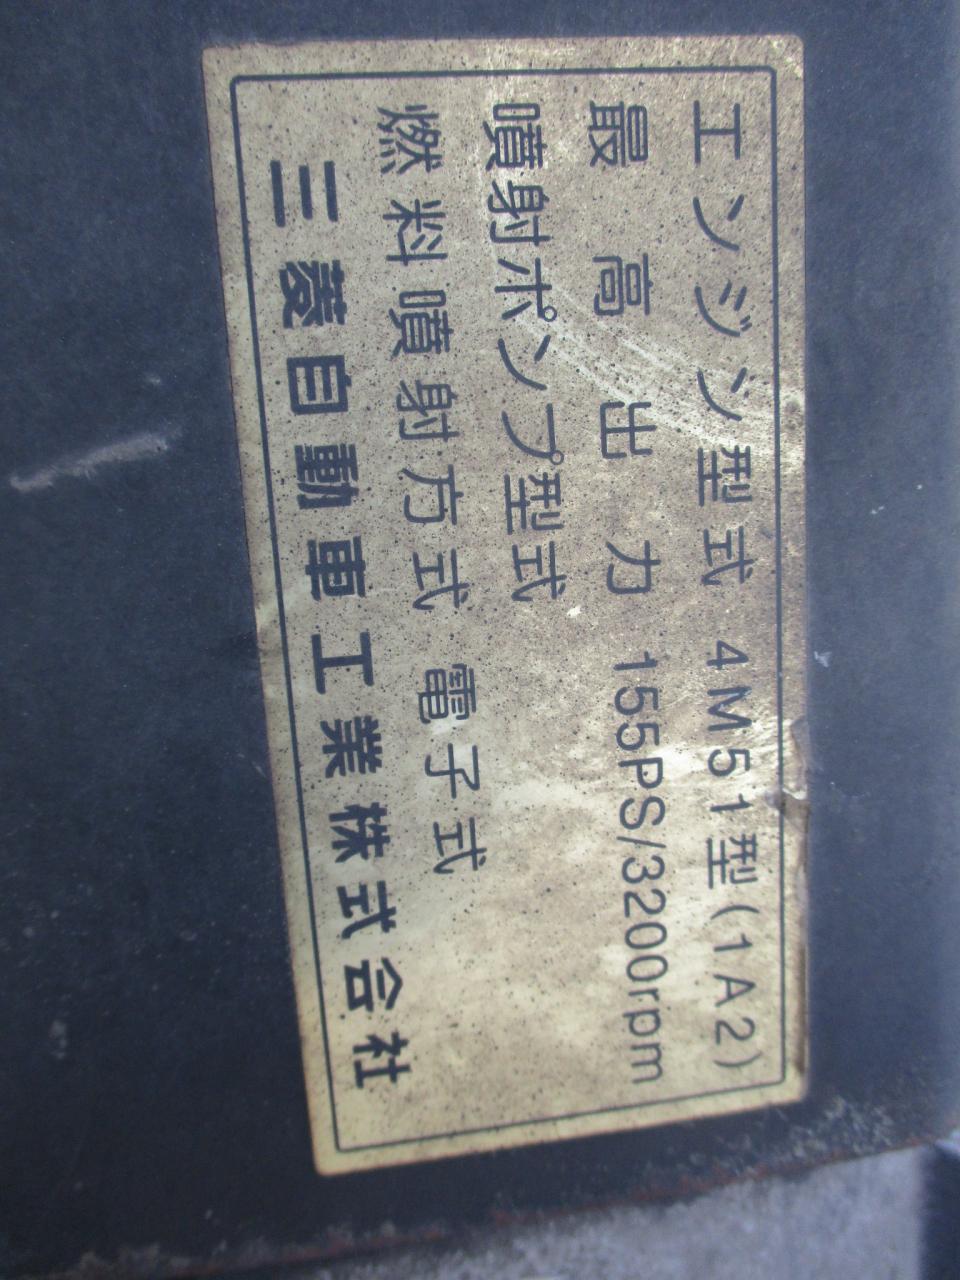 エンジン型式 4M51型(1A2)
最高出力 155PS/3200rpm
噴射ポンプ型式
燃料噴射方式 電子式
三菱自動車工業株式会社